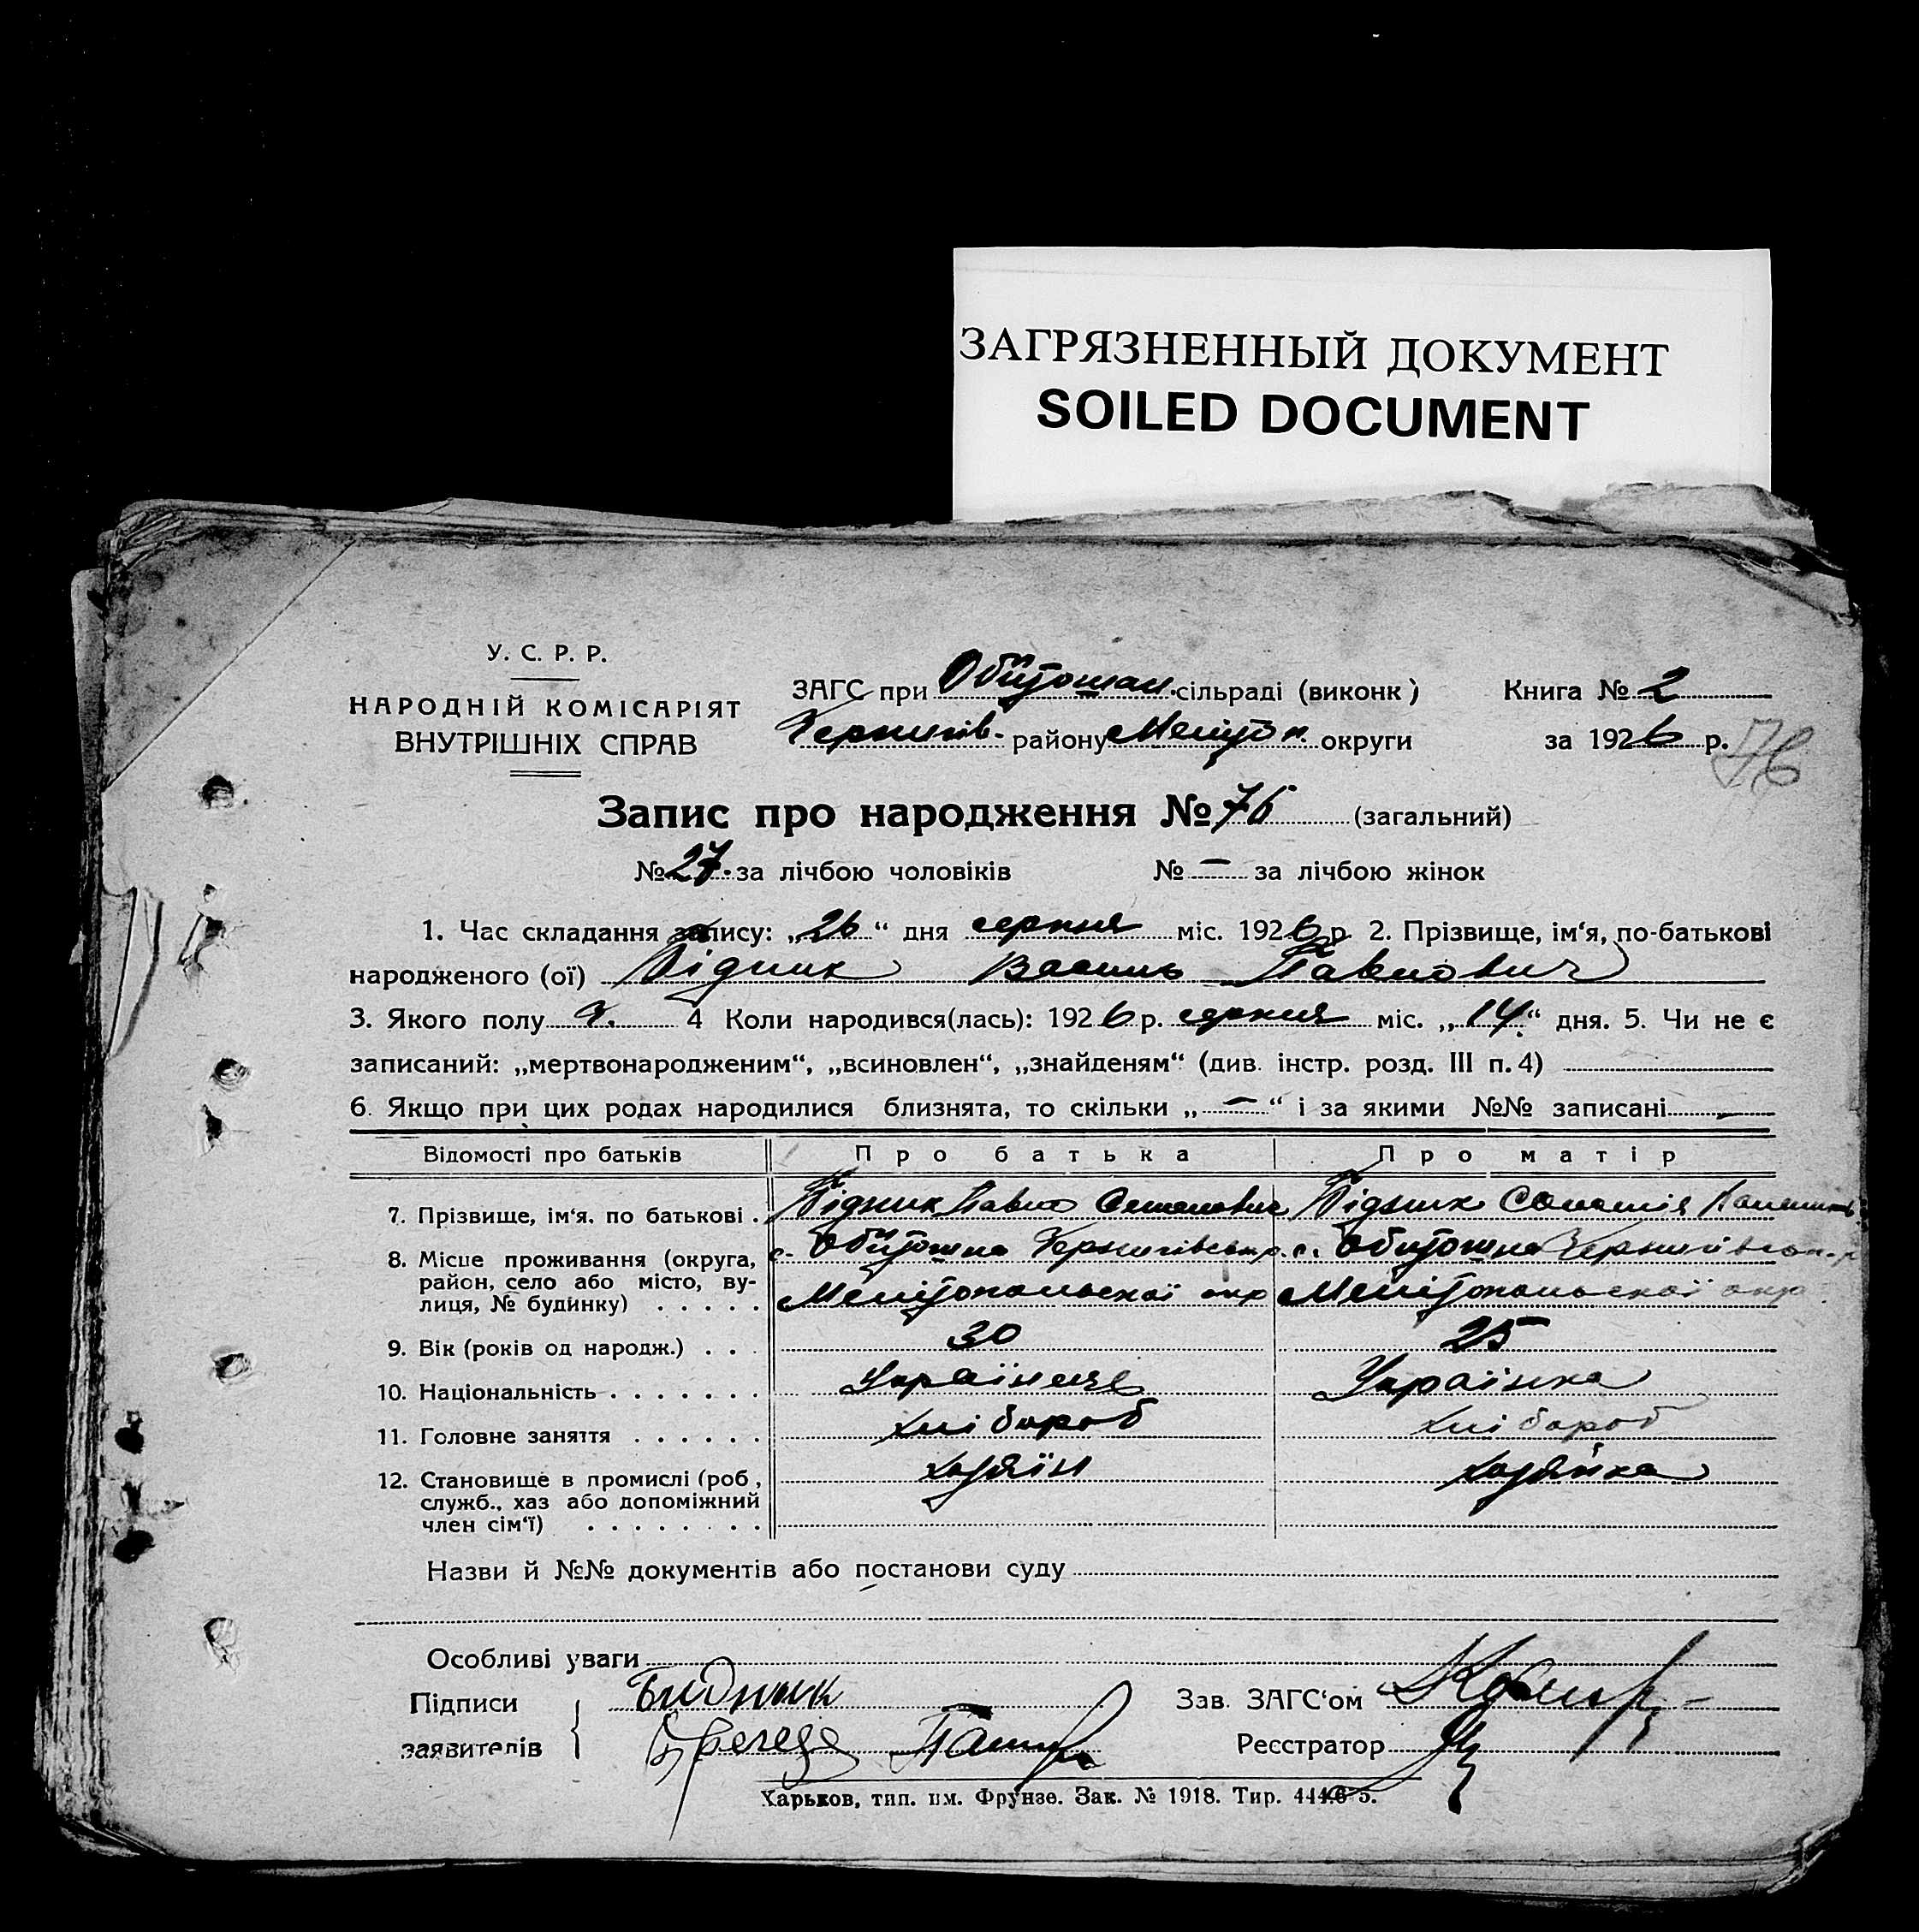 ЗАГРЯЗНЕННЫЙ ДОКУМЕНТ
SOILED DOCUMENT
У. С. Р. Р.
НАРОДНІЙ КОМІСАРІЯТ
ВНУТРІШНІХ СПРАВ
ЗАГС при Обиточан. сільраді (виконк)
Чернигів. району Мелітоп. округи
Книга № 2
за 1926 р.
76
Запис про народження № 76 (загальний)
№ 27. за лічбою чоловіків № — за лічбою жінок
1. Час складання запису: „26“ дня серпня міс. 1926 р. 2. Прізвище, ім‘я, по-батькові
народженого (ої) Бідник Василь Павлович
3. Якого полу ч. 4 Коли народився(лась): 1926 р. серпня міс. „14“ дня. 5. Чи не є
записаний: „мертвонародженим“, „всиновлен“, „знайденям“ (див. інстр. розд. III п. 4)
6. Якщо при цих родах народилися близнята, то скільки „—“ і за якими №№ записані —
Відомості про батьків Про батька Про матір
7. Прізвище, ім‘я, по батькові . Бідник Павло Семенович Бідник Соломія
8. Місце проживання (округа, район, село або місто, вулиця, № будинку) . . . . .
с. Обиточна Чернигівськ р. с. Обиточна Чернигівськ. р
Мелітопольскої окр Мелітопольскої окр.
9. Вік (років од народж.) . . . 30 25
10. Національність . . . . . . . Українець Українка
11. Головне заняття . . . . . . хлібороб хлібороб
12. Становище в промислі (роб, служб., хаз або допоміжний член сім‘ї) . . . . . . . . хозяїн хозяйка
Назви й №№ документів або постанови суду
Особливі уваги
Підписи заявителів Бидник
Зав. ЗАГС‘ом
Реєстратор
Харьков, тип. им. Фрунзе. Зак. № 1918. Тир.